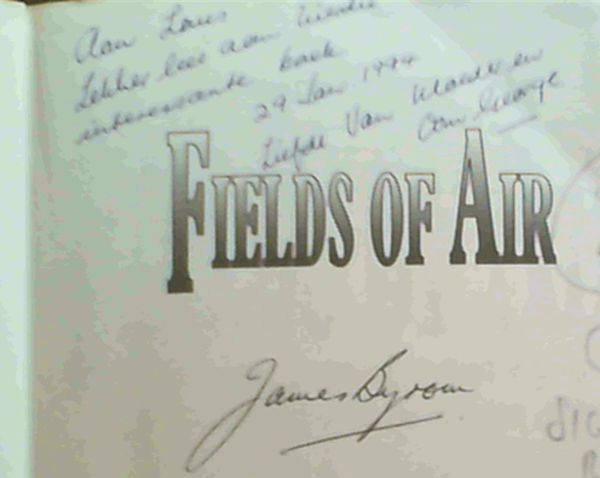 Aan Louis
Lekker lees aan hierdie
interessante boek
29 Jan 1994
Liefde van Moeder en
Oom George
FIELDS OF AIR
James Byrom
SIG
R